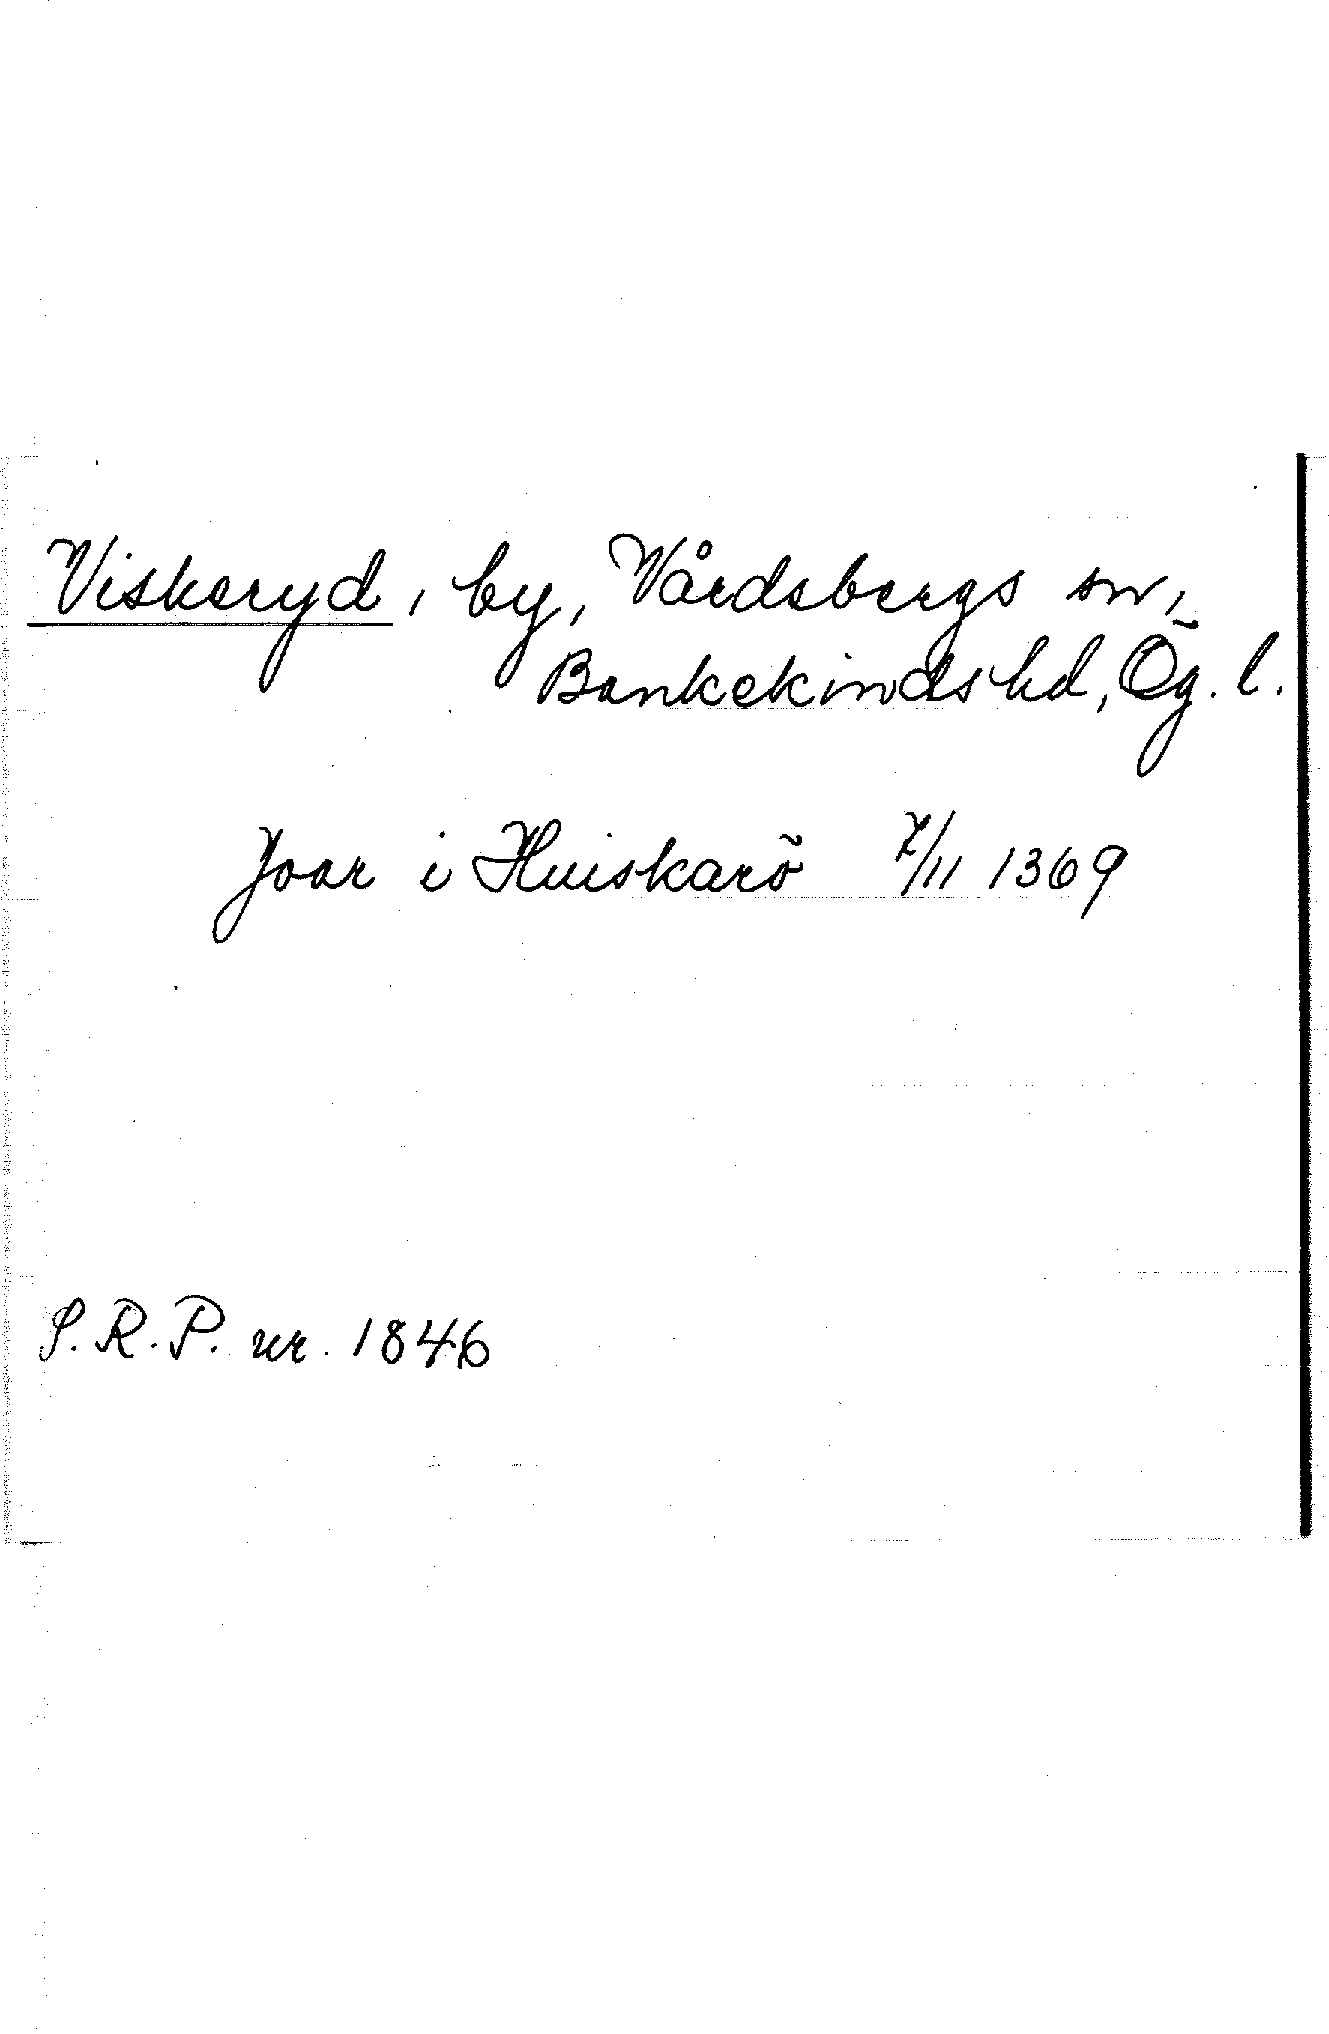 Viskaryd, by, Vårdsbergs sn,
Bankekinds hd, Ög. l.
Joar i Huiskarö 7/11 1369
S.R.P. nr. 1846